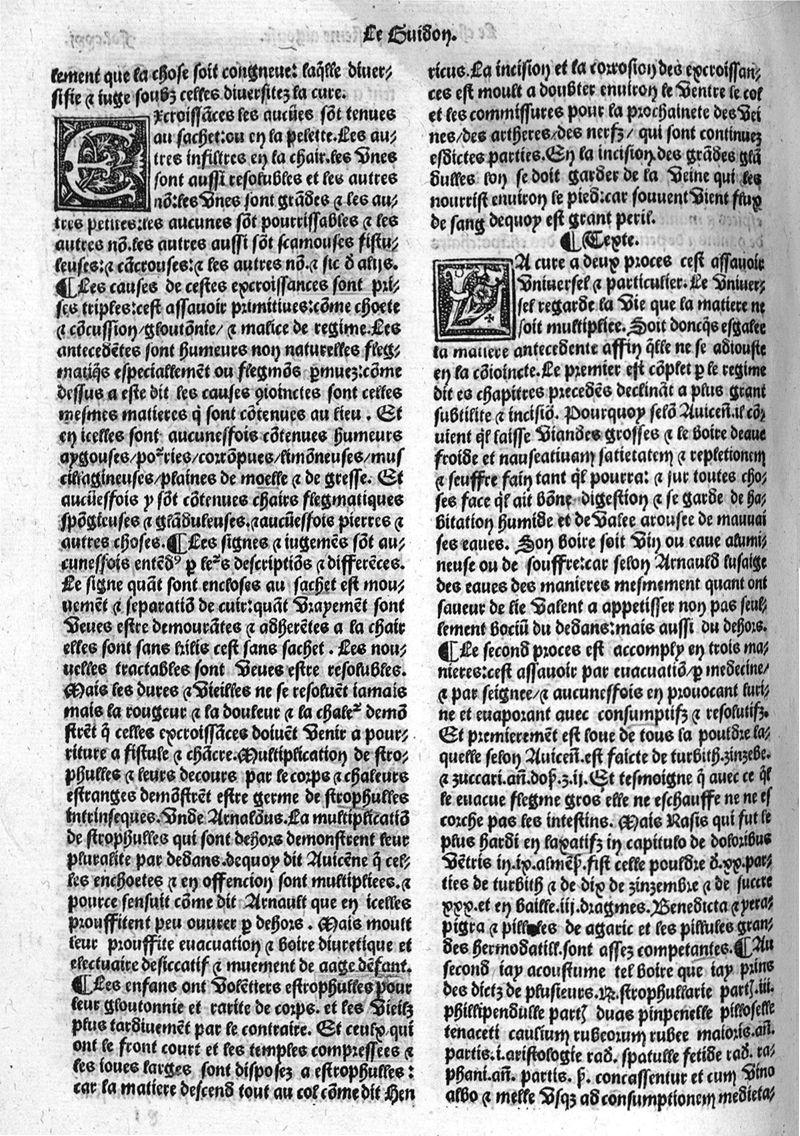 Le Guidon.
lement que la chose soit congneue: laq̃lle diver-
sifie ⁊ iuge soubz celles diversitez la cure.
Excroissãces les aucũes sõt tenues
au sachet: ou en la pelette. Les au-
tres infiltres en la chair. les vnes
sont aussi resolubles et les autres
nõ: les vnes sont grãdes ⁊ les au-
tres petites: les aucunes sõt pourrissables ⁊ les
autres nõ. les autres aussi sõt scamouses fistu-
leuses: ⁊ cãcrouses: ⁊ les autres nõ. ⁊ sic ð alijs.
¶ Les causes de cestes excroissances sont pri-
ses triples: cest assavoir primitives: cõme choete
⁊ cõcussion/ gloutõnie/ ⁊ malice de regime. Les
antecedẽtes sont humeurs non naturelles fleg-
matiq̃s especiallemẽt ou flegmõs p̱muez: cõme
dessus a este dit les causes ꝯioinctes sont celles
mesmes matieres q̃ sont cõtenues au lieu. Et
en icelles sont aucunesfois cõtenues humeurs
aygouses/ po²ries/ corrõpues/ limõneuses/ mus
cillagineuses/ plaines de moelle ⁊ de gresse. Et
aucũesfois y sõt cõtenues chairs flegmatiques
spõgieuses ⁊ glãduleuses. ⁊ aucũesfois pierres ⁊
autres choses. ¶ Les signes ⁊ iugemẽs sõt au-
cunesfois entendꝰ p̱ le²s descriptiõs ⁊ differẽces.
Le signe quãt sont encloses au sachet est mou-
vemẽt ⁊ separatiõ de cuir: quãt vrayemẽt sont
veues estre demourãtes ⁊ adherẽtes a la chair
elles sont sans kilis cest sans sachet. Les nou-
uelles tractables sont veues estre resolubles.
Mais les dures ⁊ vieilles ne se resoluẽt iamais
mais la rougeur ⁊ la douleur ⁊ la chale² demõ
strẽt q̃ celles excroissãces doiuẽt venir a pour-
riture a fistule ⁊ chãcre. Multiplication de stro-
phulles ⁊ leurs decours par le corps ⁊ chaleurs
estranges demõstrẽt estre germe de strophulles
intrinseques. Vnde Arnaldus. La multiplicatiõ
de strophulles qui sont dehors demonstrent leur
pluralite par dedans. dequoy dit Avicẽne q̃ cel-
les enchoetes ⁊ en offencion sont multipliees. ⁊
pource sensuit cõme dit Arnault que en icelles
prouffitent peu ouurer p̱ dehors. Mais moult
leur prouffite evacuation ⁊ boire diuretique et
electuaire desiccatif ⁊ muement de aage dẽfant.
¶ Les enfans ont volẽtiers estrophulles pour
leur gloutonnie et rarite de corps. et les vieilz
plus tardiuement par le contraire. Et ceulx qui
ont le front court et les temples compressees ⁊
les ioues larges sont disposez a estrophulles:
car la matiere descend tout au col cõme dit Hen
ricus. La incision et la corrosion des excroissan-
ces est moult a doubter environ le ventre le col
et les commissures pour la prochainete des vei
nes/ des artheres/ des nerfz/ qui sont continuez
esdictes parties. En la incision des grãdes glã
dulles lon se doit garder de la veine qui les
nourrist environ le pied: car souvent vient flux
de sang dequoy est grant peril.
¶ Texte.
LA cure a deux proces cest assavoir
vniversel ⁊ particulier. Le vniver-
sel regarde la vie que la matiere ne
soit multiplice. Soit doncq̃s esgalee
la matiere antecedente affin q̃lle ne se adiouste
en la cõioincte. Le premier est cõplet p̱ le regime
dit es chapitres precedẽs declinãt a plus grant
subtilite ⁊ incisiõ. Pourquoy selõ Auicen̄. il cõ-
uient q̃l laisse viandes grosses ⁊ le boire deaue
froide et nauseativam satietatem ⁊ repletionem
⁊ seuffre fain tant q̃l pourra: ⁊ sur toutes cho-
ses face q̃l ait bõne digestion ⁊ se garde de ha-
bitation humide et de valee arousee de mauuai
ses eaues. Son boire soit vin ou eaue alumi-
neuse ou de souffre: car selon Arnauld lusaige
des eaues des manieres mesmement quant ont
saueur de lie valent a appetisser non pas seul-
lement bociũ du dedans: mais aussi du dehors.
¶ Le second proces est accomply en trois ma-
nieres: cest assavoir par evacuatiõ/ p̱ medecine/
⁊ par seignee/ ⁊ aucunesfois en provocant luri-
ne et evaporant avec consumptifz ⁊ resolutifz.
Et premierement est loue de tous la pouldre la-
quelle selon Avicen̄. est faicte de turbith. zinzebe.
⁊ zuccari. an̄. dop̱. ʒ. ij. Et tesmoigne q̃ avec ce q̃l
le evacue flegme gros elle ne eschauffe ne ne es
corche pas les intestins. Mais Rasis qui fut le
plus hardi en laxatifz in capitulo de doloribus
ventris in. ix. almep̱. fist celle pouldre ð. xx. par-
ties de turbith ⁊ de dix de zinzembre ⁊ de succre
xxx. et en baille. iij. dragmes. Benedicta ⁊ yera-
pigra ⁊ pillules de agaric et les pillules gran-
des hermodatill. sont assez competantes. ¶ Au
second iay acoustume tel boire que iay prins
des dictz de plusieurs. ℞. strophullarie part̄. iii.
phillipendulle part̄ duas pinpenelle pilloselle
tenaceti caulium rubeorum rubee maioris. an̄.
partis. i. aristologie rad̄. spatulle fetide rad̄. ra-
phani. an̄. partis. p̱. concassentur et cum vino
albo ⁊ melle vsqz ad consumptionem medieta-